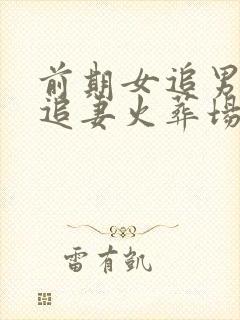 前期女追男
追妻火葬场
雷有凯